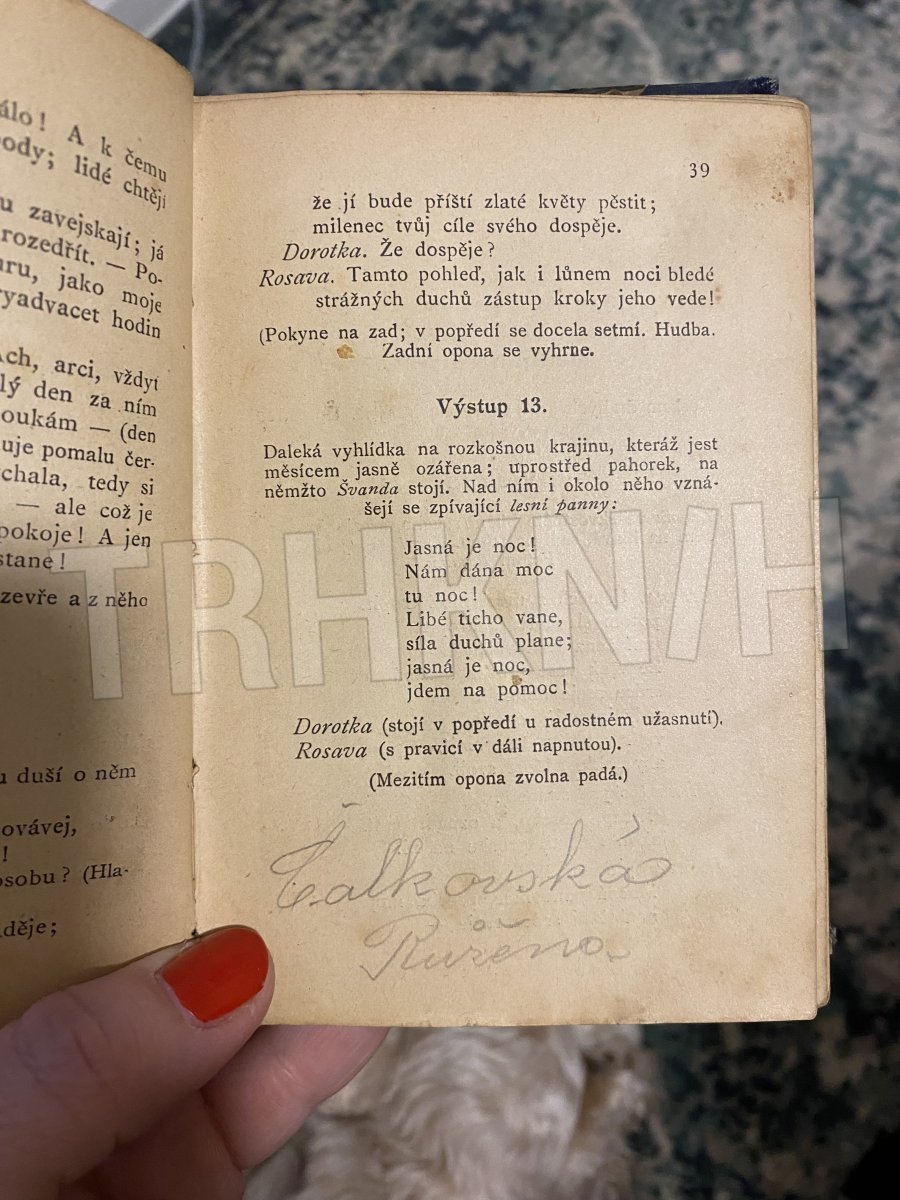 álo! A k čemu
ody; lidé chtějí
u zavejskají; já
rozedřít. — Po-
ru, jako moje
ryadvacet hodin
Ach, arci, vždyť
lý den za ním
oukám — (den
uje pomalu čer-
chala, tedy si
— ale což je
pokoje! A jen
stane!
zevře a z něho
u duší o něm
ovávej,
!
osobu? (Hla-
děje;
39
že jí bude příští zlaté květy pěstit;
milenec tvůj cíle svého dospěje.
Dorotka. Že dospěje?
Rosava. Tamto pohleď, jak i lůnem noci bledé
strážných duchů zástup kroky jeho vede!
(Pokyne na zad; v popředí se docela setmí. Hudba.
Zadní opona se vyhrne.
Výstup 13.
Daleká vyhlídka na rozkošnou krajinu, kteráž jest
měsícem jasně ozářena; uprostřed pahorek, na
němžto Švanda stojí. Nad ním i okolo něho vzná-
šejí se zpívající lesní panny:
Jasná je noc!
Nám dána moc
tu noc!
Libé ticho vane,
síla duchů plane;
jasná je noc,
jdem na pomoc!
Dorotka (stojí v popředí u radostném užasnutí).
Rosava (s pravicí v dáli napnutou).
(Mezitím opona zvolna padá.)
Čalkovská
Růžena
TRHKNIH